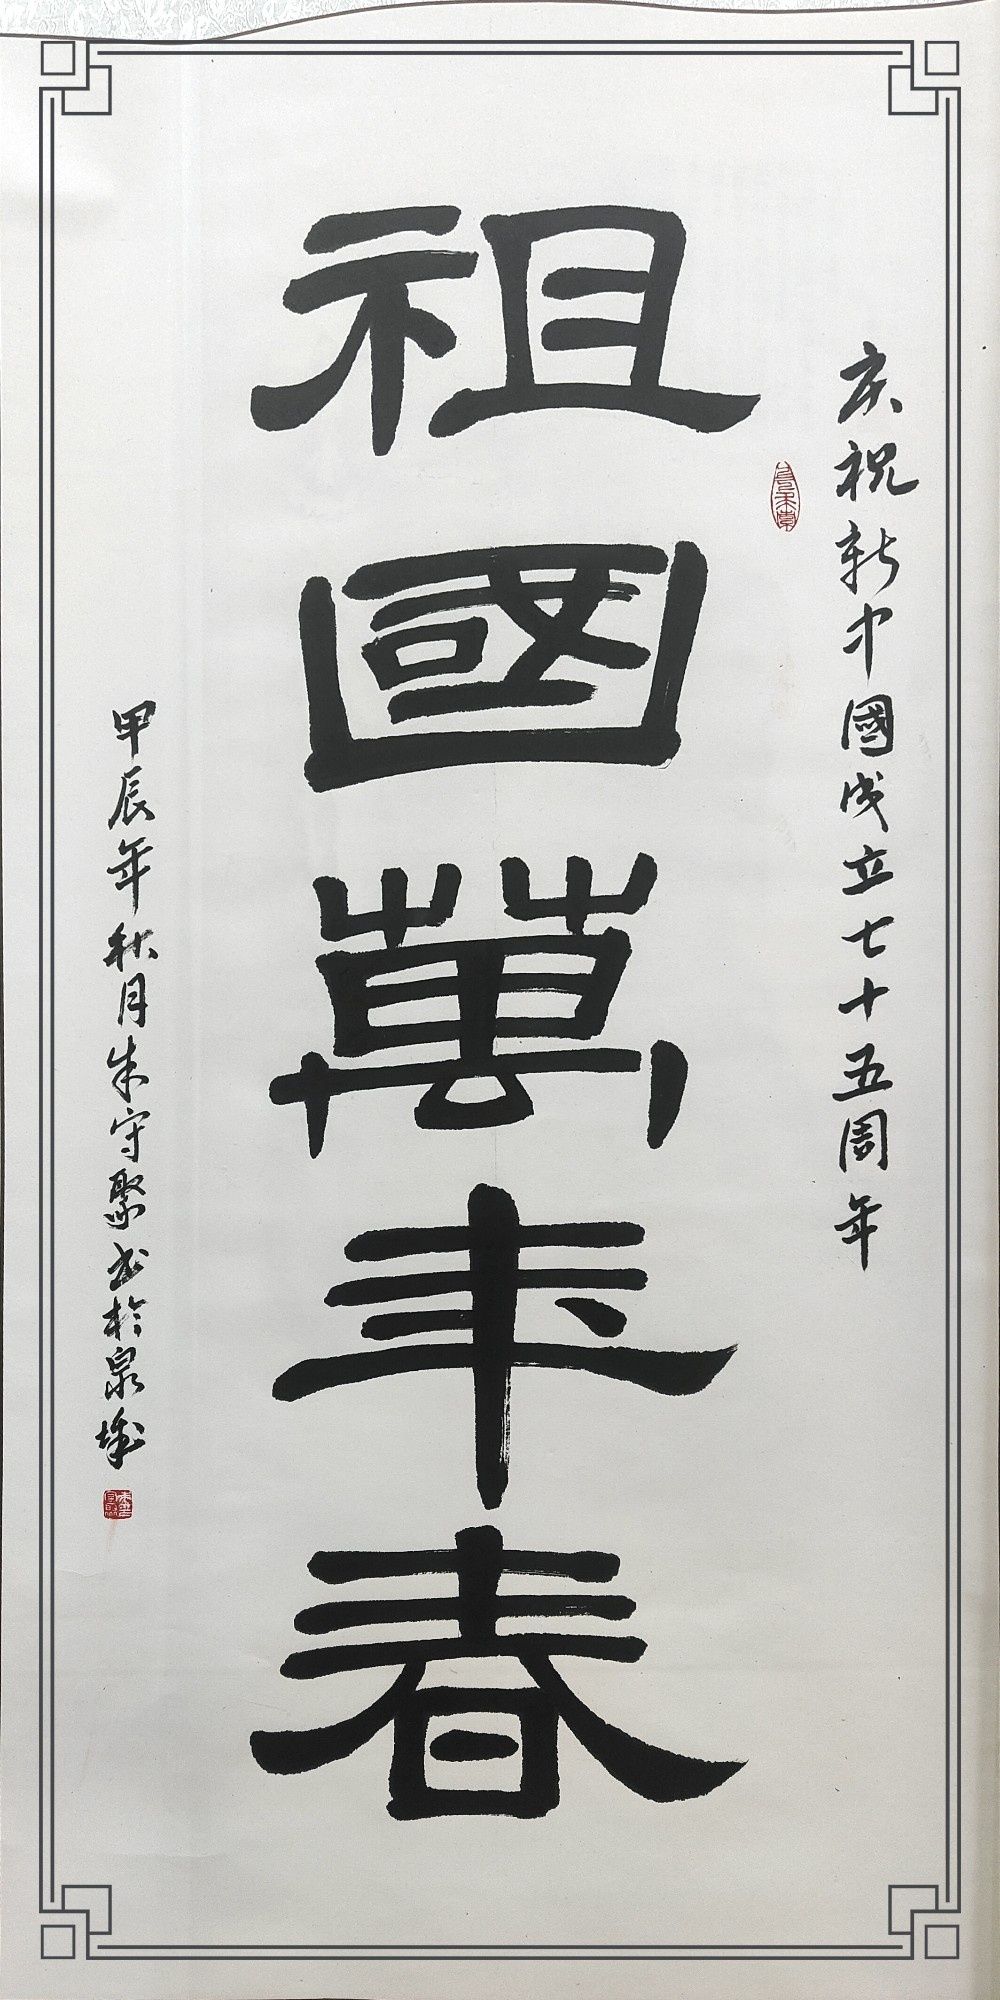 庆祝新中國成立七十五周年
祖國萬年春
甲辰年秋月朱守聚书於泉城